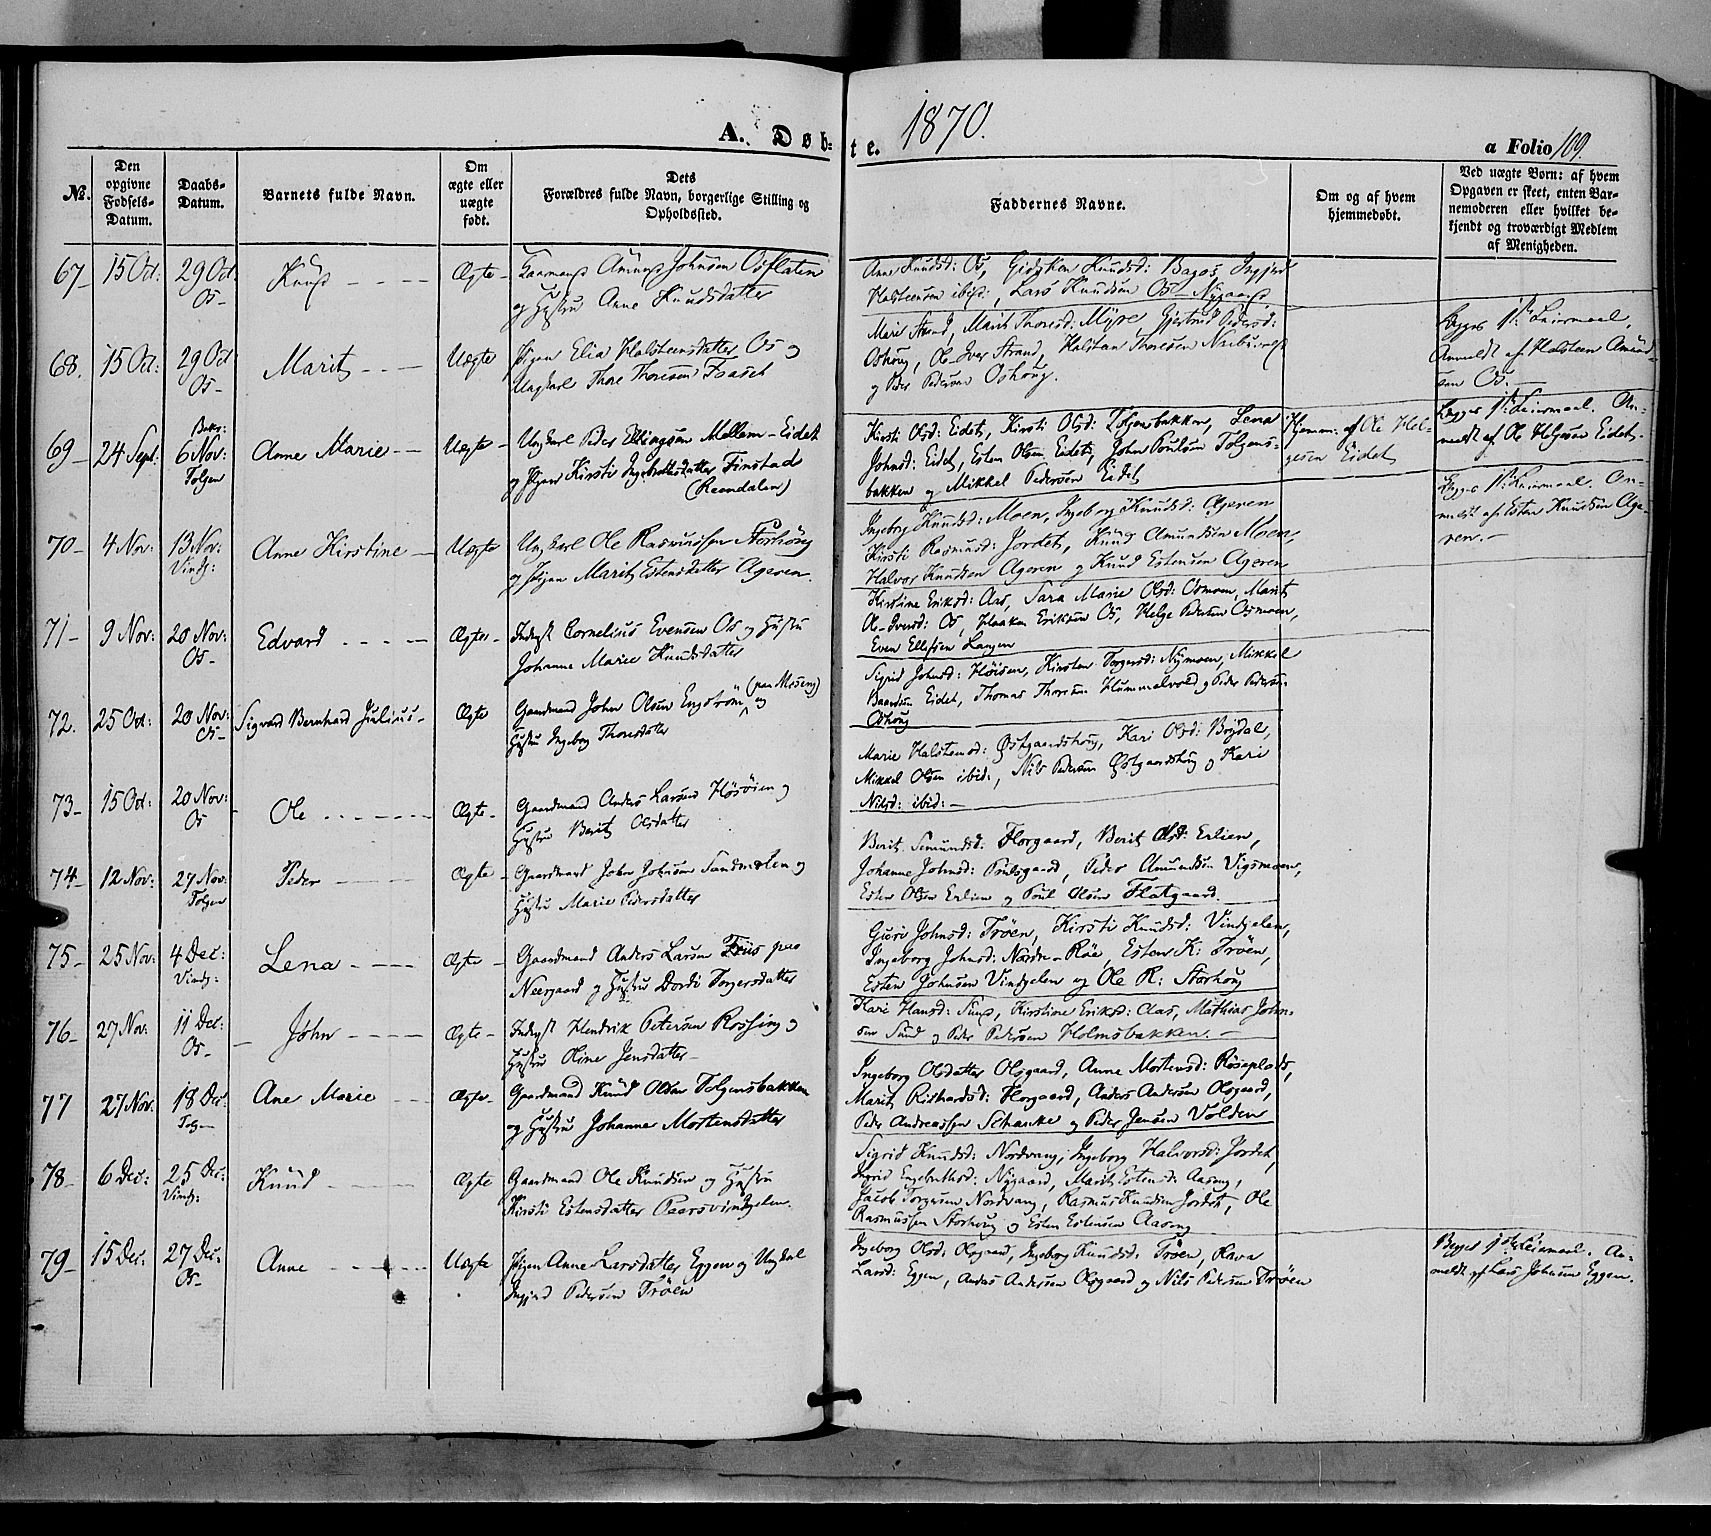 A. Døb-
te.
1870.
a Folio 109.
No.
Den
opgivne
Fødsels-
Datum.
Daabs-
Datum.
Barnets fulde Navn.
Om
ægte eller
uægte
født.
Dets
Forældres fulde Navn, borgerlige Stilling og
Opholdssted.
Faddernes Navne.
Om og af hvem
hjemmedøbt.
Ved uægte Born: af hvem
Opgaven er skeet, enten Bar-
nemoderen eller hvilket be-
kjendt og troværdigt Medlem
af Menigheden.
67- 15 Oct: 29 Oct Os- Knud Ægte-
Amund Johnsen Osflaten
og Hustru Anne Knudsdatter
Anne Knudsd: Os, Knudsd: Ingjerd
Halsteensen ibid:, Lars Knudsen Os- Nygaard
68. 15 Oct: 29 Oct Os- Marit Uægte
Pigen Elia Halsteensdatter Os og
Ungkarl Thore Thoresen Faaset
Marie Strand, Marit Thoresd: Myre, Gjertrud Pedersd:
Oshoug, Ole Iver Strand, Halstein Thoresen
og Peder Pedersen Oshoug.
Begges 1ste Leiermaal,
Anmeldt af Halsteen Amund-
sen Os.
69- 24 Sept: 6 Nov: Tolgen Anne Marie Uægte-
Ungkarl Peder Ellingsen Mellem-Eidet
og Pigen Kirsti Ingebretsdatter Finstad
(Reendalen)
Kirsti Olsd: Eidet, Kirsti Olsd: Tolgensbakken, Lena
Johnsd: Eidet, Esten Olsen Eidet, John Poulsen Tolgens-
bakken og Mikkel Pedersen Eidet
Hjemm: af Ole Hel-
gesen Eidet
Begges 1ste Leiermaal. An-
meldt af Ole Helgesen Eidet-
70- 4 Nov: 13 Nov: Vindj: Anne Kirstine Uægte
Ungkarl Ole Rasmussen Storhoug
og Pigen Marit Estensdatter Ageren.
Ingeborg Knudsd: Moen, Ingeborg Knudsd: Ageren
Kirsti Rasmusd: Jordet, Knud Amundsen Moen,
Halvor Knudsen Ageren og Knud Estensen Ageren
Begges 1ste Leiermaal. An-
meldt af Esten Knudsen Age-
ren.-
71- 9 Nov: 20 Nov: Os- Edvard Ægte-
Inderst Cornelius Evensen Os og Hustru
Johanne Marie Knudsdatter
Kirstine Eriksd: Aas, Sara Marie Olsd: Osmoen, Marit
Ole-Iversd: Os, Haaken Eriksen Os, Helge Pedersen Osmoen,
Even Ellefsen Langen
72. 25 Oct: 20 Nov: Os- Sigvard Bernhard Julius- Ægte
Gaardmand John Olsen Engstrøm (paa Moseng) og
Hustru Ingeborg Thoresdatter
Sigrid Johnsd: Høisen, Kirsten Torgersd: Nymoen, Mikkel
Baardsen Eidet, Thomas Thoresen Hummelvold og Peder Pedersen
Oshoug
73- 15 Oct: 20 Nov: Os Ole Ægte-
Gaardmand Anders Larsen Høsøien og
Hustru Berit Olsdatter
Marie Halstensd: Østgaardshoug, Kari Olsd: Brydal,
Mikkel Olsen ibid:, Nils Pedersen Østgaardshoug og Kari
Nilsd: ibid:-
74- 12 Nov: 27 Nov: Tolgen Peder Ægte-
Gaardmand John Johnsen Sandmælen og
Hustru Marie Pedersdatter
Berit Semundsd: Horgaard, Berit Olsd: Erlien,
Johanne Johnsd: Poulsgaard, Peder Amundsen Vigsmoen,
Esten Olsen Erlien og Poul Olsen Flatgaard.
75- 25 Nov: 4 Dec: Vindj: Lena Ægte-
Gaardmand Anders Larsen Friis paa
Neergaard og Hustru Dordi Torgersdatter
Guri Johnsd: Trøen, Kirsti Knudsd: Vindjelen,
Ingeborg Johnsd: Nordre-Røe, Esten K: Trøen,
Esten Johnsen Vindjelen og Ole R: Storhoug
76- 27 Nov: 11 Dec: Os- John Ægte-
Indrst Hendrik Petersen Rossing og
Hustru Oline Jensdatter-
Kari Hansd: Sund, Kirstine Eriksd: Aas, Mathias John-
sen Sund og Peder Pedersen Holmsbakken.
77 27 Nov: 18 Dec: Tolgen Ane Marie Ægte-
Gaardmand Knud Olsen Tolgensbakken
og Hustru Johanne Mortensdatter
Ingeborg Olsdatter Olsgaard, Anne Mortensd: Røseplads,
Marit Richardsd: Horgaard, Anders Andersen Olsgaard,
Peder Andreassen Schancke og Peder Jensen Volden
78- 6 Dec: 25 Dec: Vindj: Knud Ægte
Gaardmand Ole Knudsen og Hustru
Kirsti Estensdatter Paarsvindjelen.
Sigrid Knudsd: Nordvang, Ingeborg Halvorsd: Jordet,
Ingrid Engebretsd: Nygaard, Marit Estensd: Aaseng,
Jacob Torgersen Nordvang, Rasmus Knudsen Jordet, Ole
Rasmussen Storhoug og Esten Estensen Aaseng
79- 15 Dec: 27 Dec: Os- Anne Uægte
Pigen Anne Larsdatter Eggen og Ungkarl
Ingjerd Pedersen Trøen
Ingeborg Olsd: Olsgaard, Ingeborg Knudsd: Trøen,
Larsd: Eggen, Anders Andersen Olsgaard og Nils Pedersen Trøen
Begges 1ste Leiermaal. An-
meldt af Lars Johnsen Eggen.